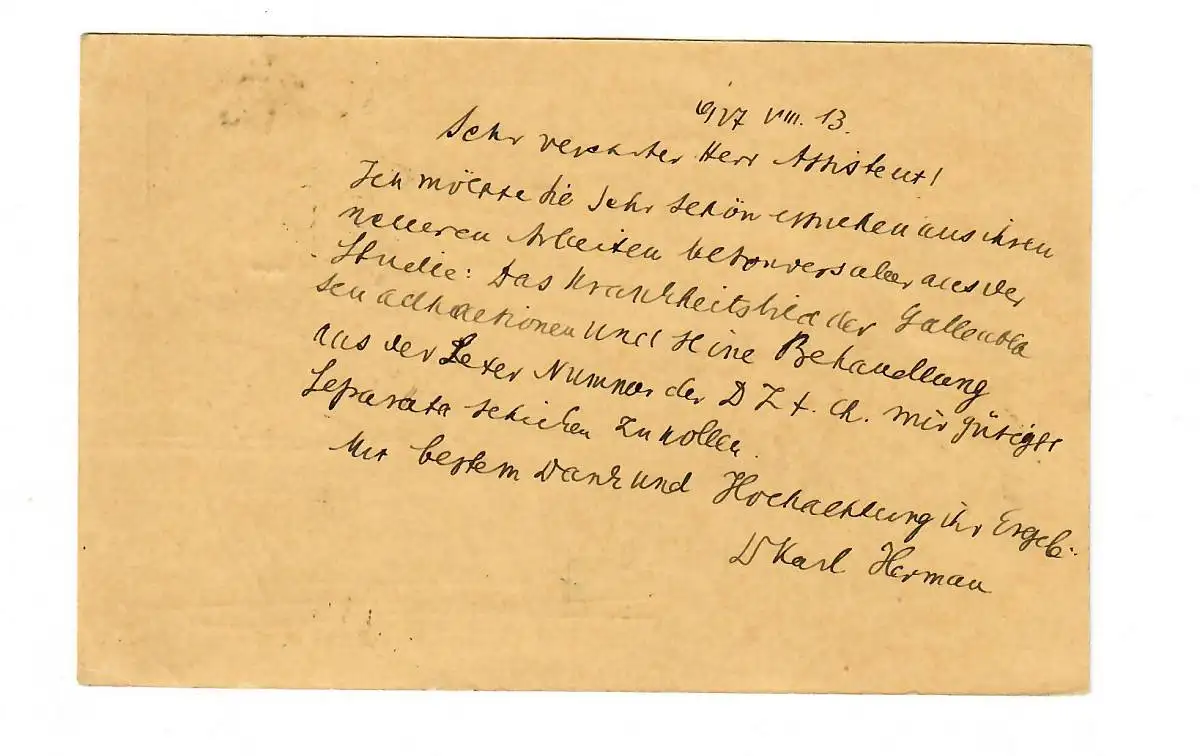 1927 VIII. 13.
Sehr verehrter Herr Assistent!
Ich möchte Sie sehr schön ersuchen aus ihren
neueren Arbeiten besonders aber aus der
Studie: Das Krankheitsbild der Gallenbla
sen adhaetionen und seine Behandlung
aus der Nummer der D Z f. Ch. mir gütigst
Separata schicken zu wollen.
Mit bestem Dank und Hochachtung ihr Ergeb.
Dr Karl Herman